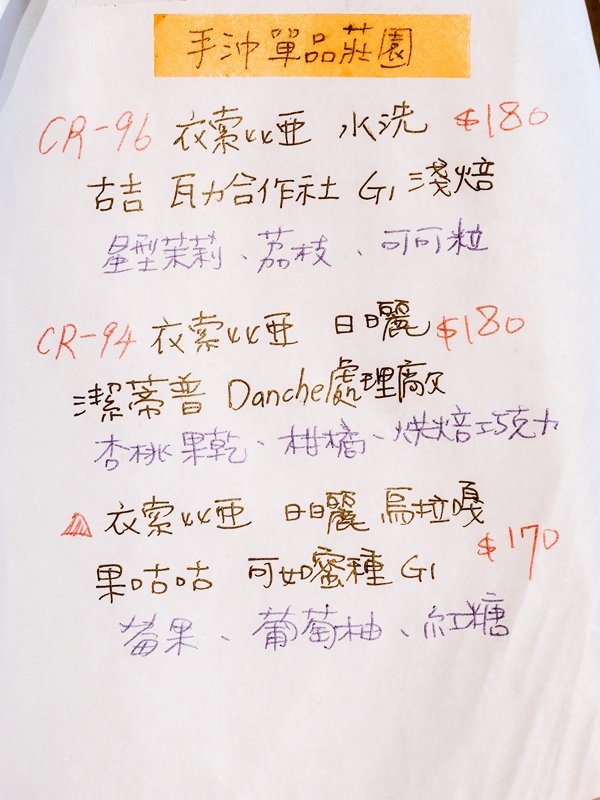 手沖單品莊園
CR-96 衣索比亞 水洗 $180
古吉 瓦力合作社 G1 淺焙
星型茉莉、荔枝、可可粒
CR-94 衣索比亞 日曬 $180
潔蒂普 Danche處理廠
杏桃果乾、柑橘、烘焙巧克力
衣索比亞 日曬 烏拉嘎 $170
果咕咕 可如蜜種 G1
莓果、葡萄柚、紅糖